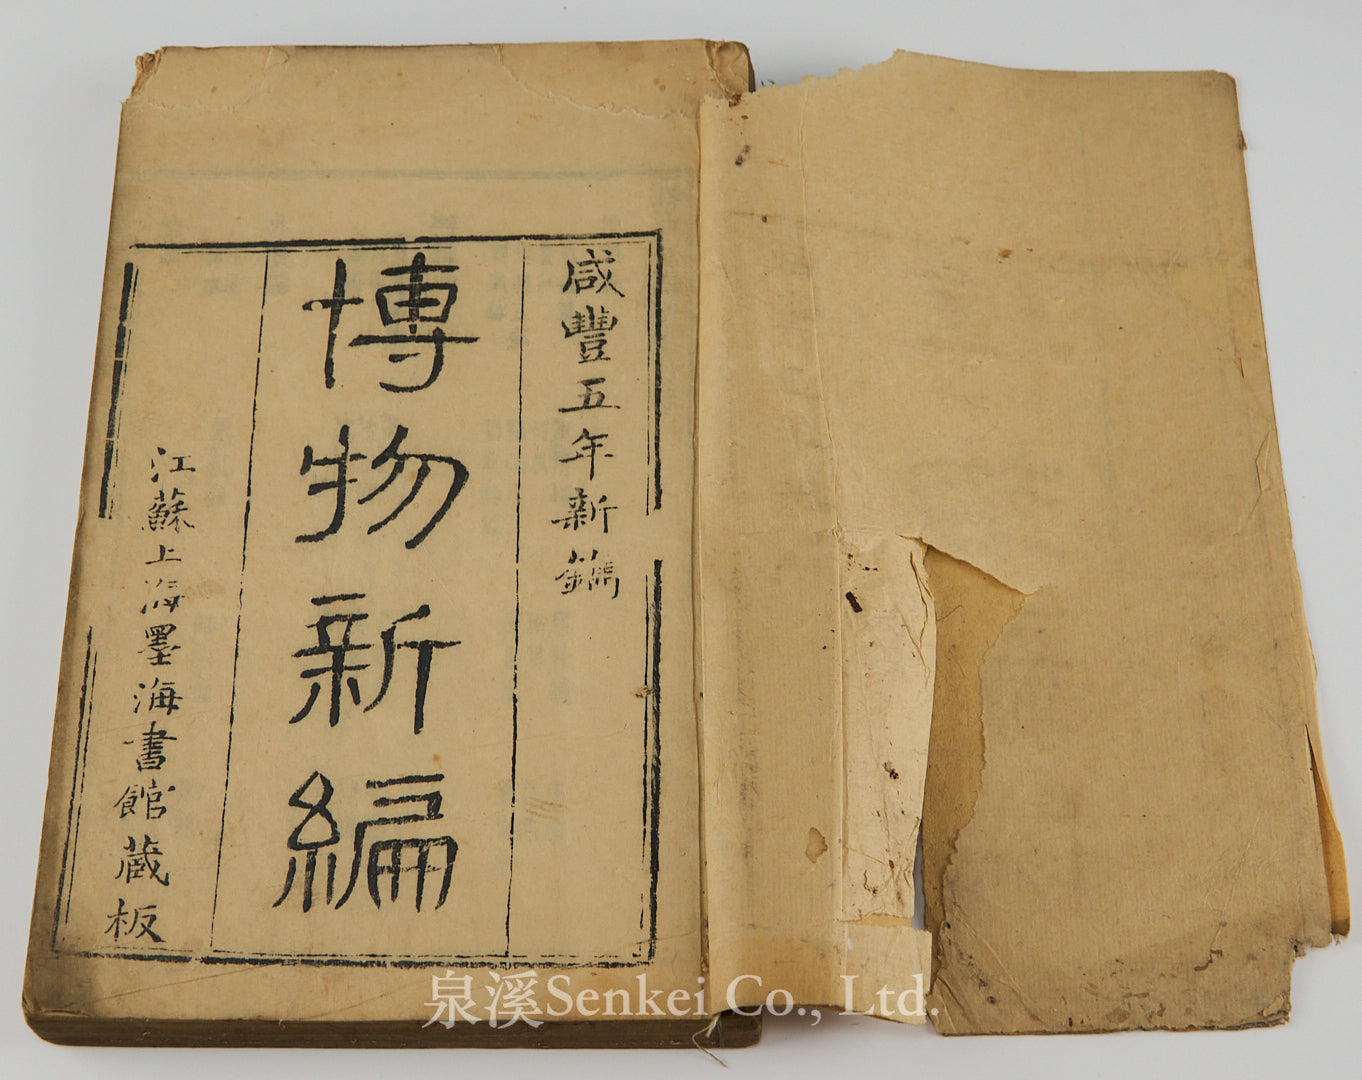 咸豐五年新鐫
博物新編
江蘇上海墨海書館藏板
泉溪Senkei Co., Ltd.